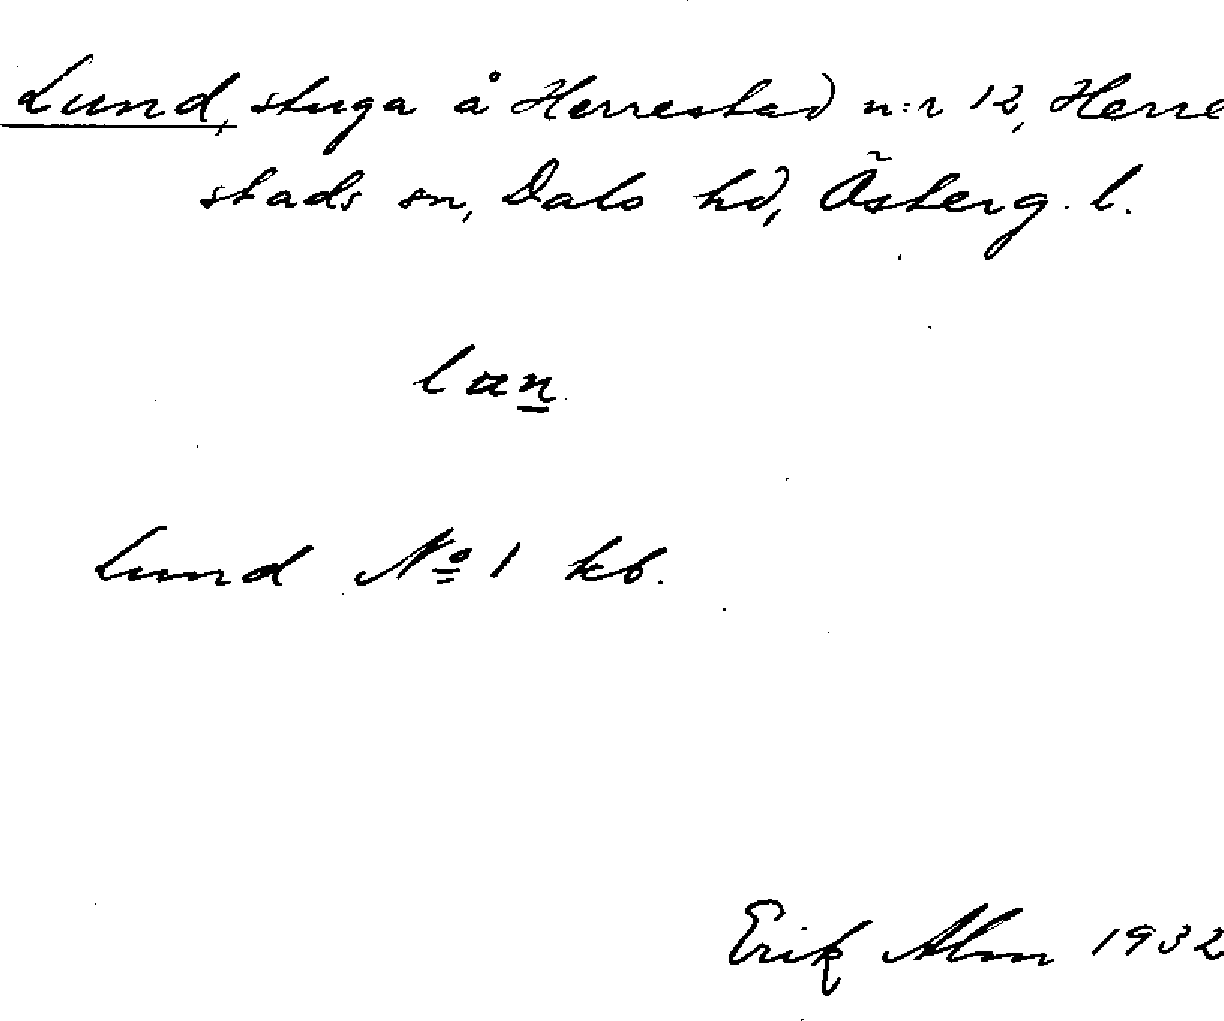 Lund, stuga å Herrestad n:r 12, Herre
stads sn, Dals hd, Österg. l.
lan
Lund No 1 kb.
Erik Alm 1932